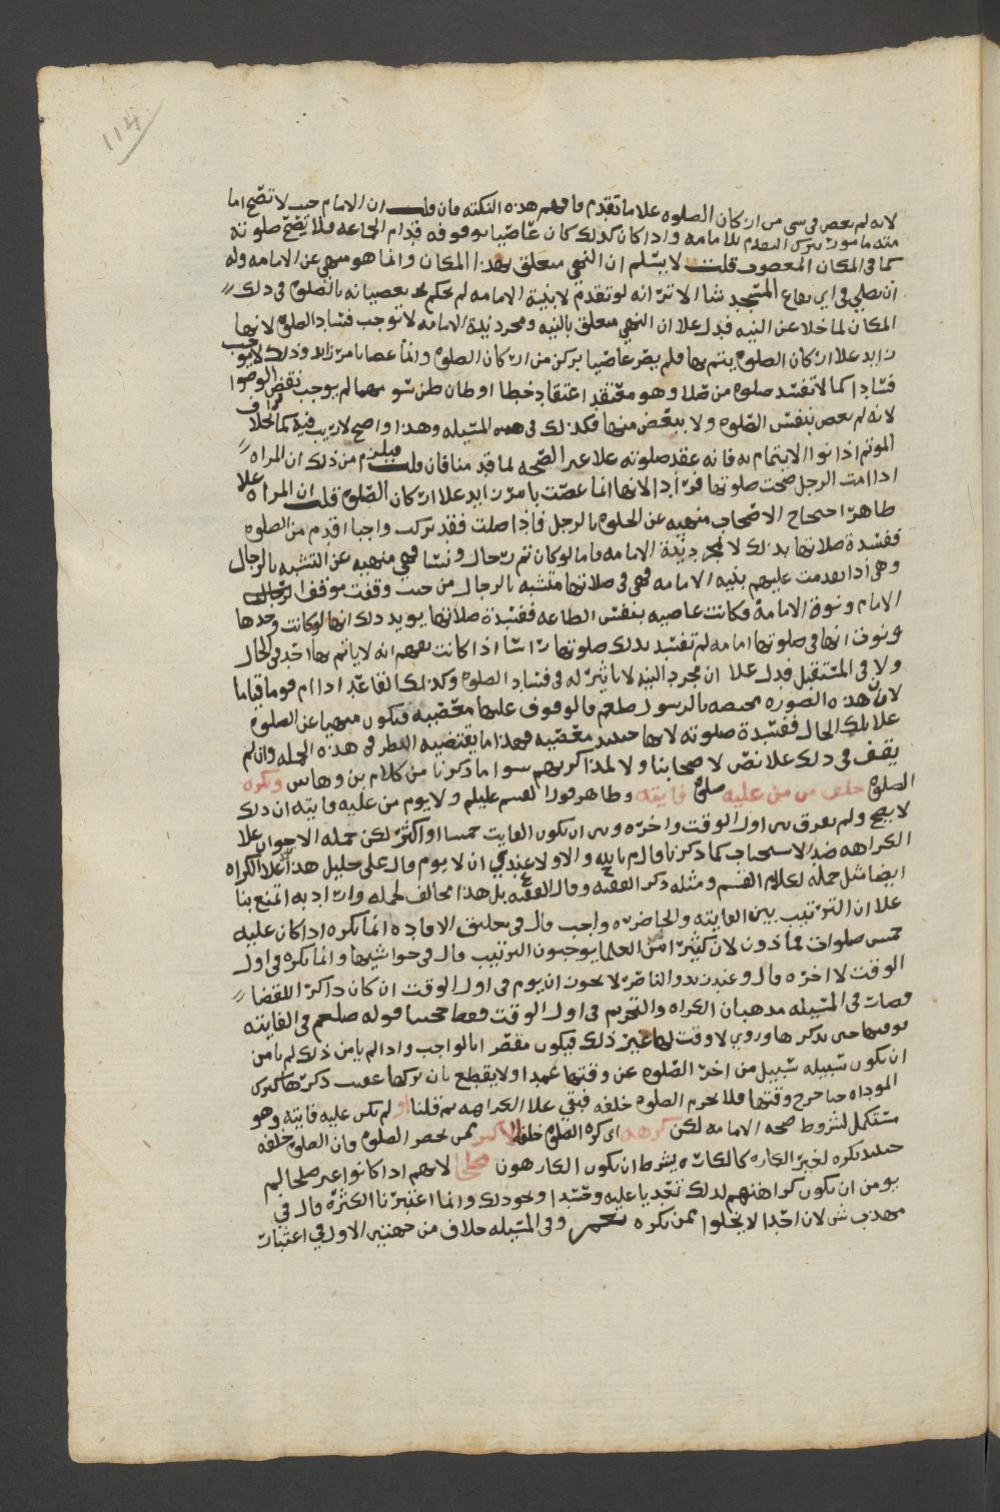 114
لانه لم يعص في شي من اركان الصلوه علا ما تقدم فافهم هذه النكته فان قلت ان الامام حيث لا تصح اما
مته مامور بترك التقدم للامامه واذا كان كذلك كان عاصيا بوقوفه قدام الجماعه فلا تصح صلوته
كما في المكان المغصوب قلت لا يسلم ان النهي متعلق بهذا المكان وانما هو منهي عن الامامه وله
ان يصلي في اي بقاع المسجد شا الا ترا انه لو تقدم لا بنية الامامه لم يحكم بعصيانه بالصلوه في ذلك
المكان لما خلا عن النيه فدل علا ان النهي متعلق بالنيه ومجرد نية الامامه لا توجب فساد الصلوه لانها
زايد علا اركان الصلوه يتم بها فلم يصر عاصيا بركن من اركان الصلوه وانما عصا بامر زايد وذلك لا يوجب
فسادا كما لا تفسد صلوه من صلا وهو معتقد اعتقاد خطا او ظان ظن سو مما لم يوجب نقض الوضوا
لانه لم يعص بنفس الصلوه ولا ببعض منها فكذلك في هذه المسيله وهذا واضح لا ريب فيه كما خلاف
الموتم اذا نوا الايتمام به فانه عقد صلوته علا غير الصحه لما قدمنا فان قلت فيلزم من ذلك ان المراه
اذا امت الرجل صحت صلوتها فرادا لانها انما عصت بامر زايد علا اركان الصلوه قلت ان المراه علا
ظاهر احتجاج الاصحاب منهيه عن الصلوه بالرجل فاذا صلت فقد تركت واجبا اقدم من الصلوه
ففسدة صلاتها بذلك لا بمجرد نية الامامه فاما لو كان ثم رجال ونسا فهي منهيه عن التشبه بالرجال
وهي اذا تقدمت عليهم بنيه الامامه فهي في صلاتها متشبه بالرجال من حيث وقفت موقف الرجال
الامام ونوة الامامه فكانت عاصيه بنفس الطاعه ففسدة صلاتها يويد ذلك انها لو كانت وحدها
ونوت انها في صلوتها امامه لم تفسد بذلك صلوتها راسا اذا كانت تفهم انه لا ياتم بها احد في الحال
ولا في المستقبل فدل علا ان مجرد النيه لا تاثير له في فساد الصلوه وكذلك القاعد اذا ام قوما قياما
لان هذه الصوره مختصه بالرسول صلعم فالوقوف عليها معصيه فيكون منهيا عن الصلوه
علا تلك الحال ففسدة صلوته لانها حينيذ معصيه فهذا ما يقتضيه النظر في هذه الجمله وان لم
يقف في ذلك علا نص لاصحابنا ولا لمذاكريهم سوا ما ذكرنا من كلام بن وهاس وتكره
الصلوه خلف من عليه صلوه فايته وظاهر قول القسم عليلم ولا يوم من عليه فايته ان ذلك
لا يصح ولم يفرق بين اول الوقت واخره وبين ان يكون الفايت خمسا او اكثر لكن حمله الاخوان علا
الكراهه ضد الاستحباب كما ذكرنا قال م بالله والاولا عندي ان لا يوم قال علي خليل هذا علا الكراه
ايضا مثل حمله لكلام القسم ومثله ذكر الفقيه وقال الفقيه بل هذا مخالف لحمله واراد به المنع بنا
علا ان الترتيب بين الفايته والحاضره واجب قال في تعليق الافاده انما يكره اذا كان عليه
خمس صلوات فما دون لان كثيرا من العلما يوجبون الترتيب قال في حواشيها وانما يكره في اول
الوقت لا اخره قال وعند زيد والناصر لا يجوز ان يوم في اول الوقت ان كان ذاكرا للقضا
فصارت في المسيله مذهبان الكراه والتحريم في اول الوقت فقط محتجا قوله صلعم في الفايته
فوقتها حين يذكرها وروي لا وقت لها غير ذلك فيكون مقصرا بالواجب واذا لم يامن ذلك لم يامن
ان يكون سبيله سبيل من اخر الصلوه عن وقتها عمدا ولا يقطع بان تركها عقيب ذكرها كترك
الموداه حتا خرج وقتها فلا تحرم الصلوه خلفه فبقي علا الكراهه ثم قلنا او لم تكن عليه فايته وهو
مستكمل لشروط صحه الامامه لكن كرهه اي كره الصلوه خلفه الاكثر ممن يحضر الصلوه فان الصلوه خلفه
حينيذ تكره لغير الكاره كالكاره بشرط ان يكون الكارهون صلحا لانهم اذا كانوا غير صلحا لم
يومن ان يكون كراهتهم لذلك تعديا عليه وحسدا ونحو ذلك وانما اعتبرنا الكثره قال في
مهذب ش لان احدا لا يخلوا ممن يكرهه نعم وفي المسيله خلاف من جهتين الاولى في اعتبار